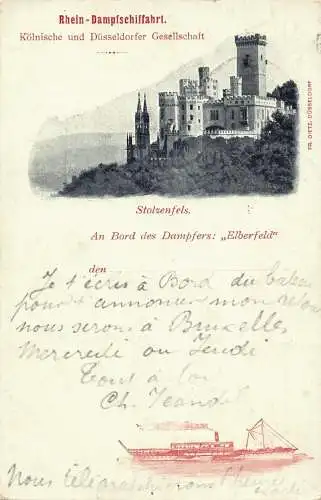 Rhein-Dampfschiffahrt.
Kölnische und Düsseldorfer Gesellschaft
FR. DIETZ, DÜSSELDORF
Stolzenfels.
An Bord des Dampfers: „Elberfeld"
den
Je t'écris à Bord du bateau
pour t'annoncer mon retour
nous serons à Bruxelles
Mercredi ou Jeudi
Tout à toi
Ch.
Nous télégraphierons l'heure